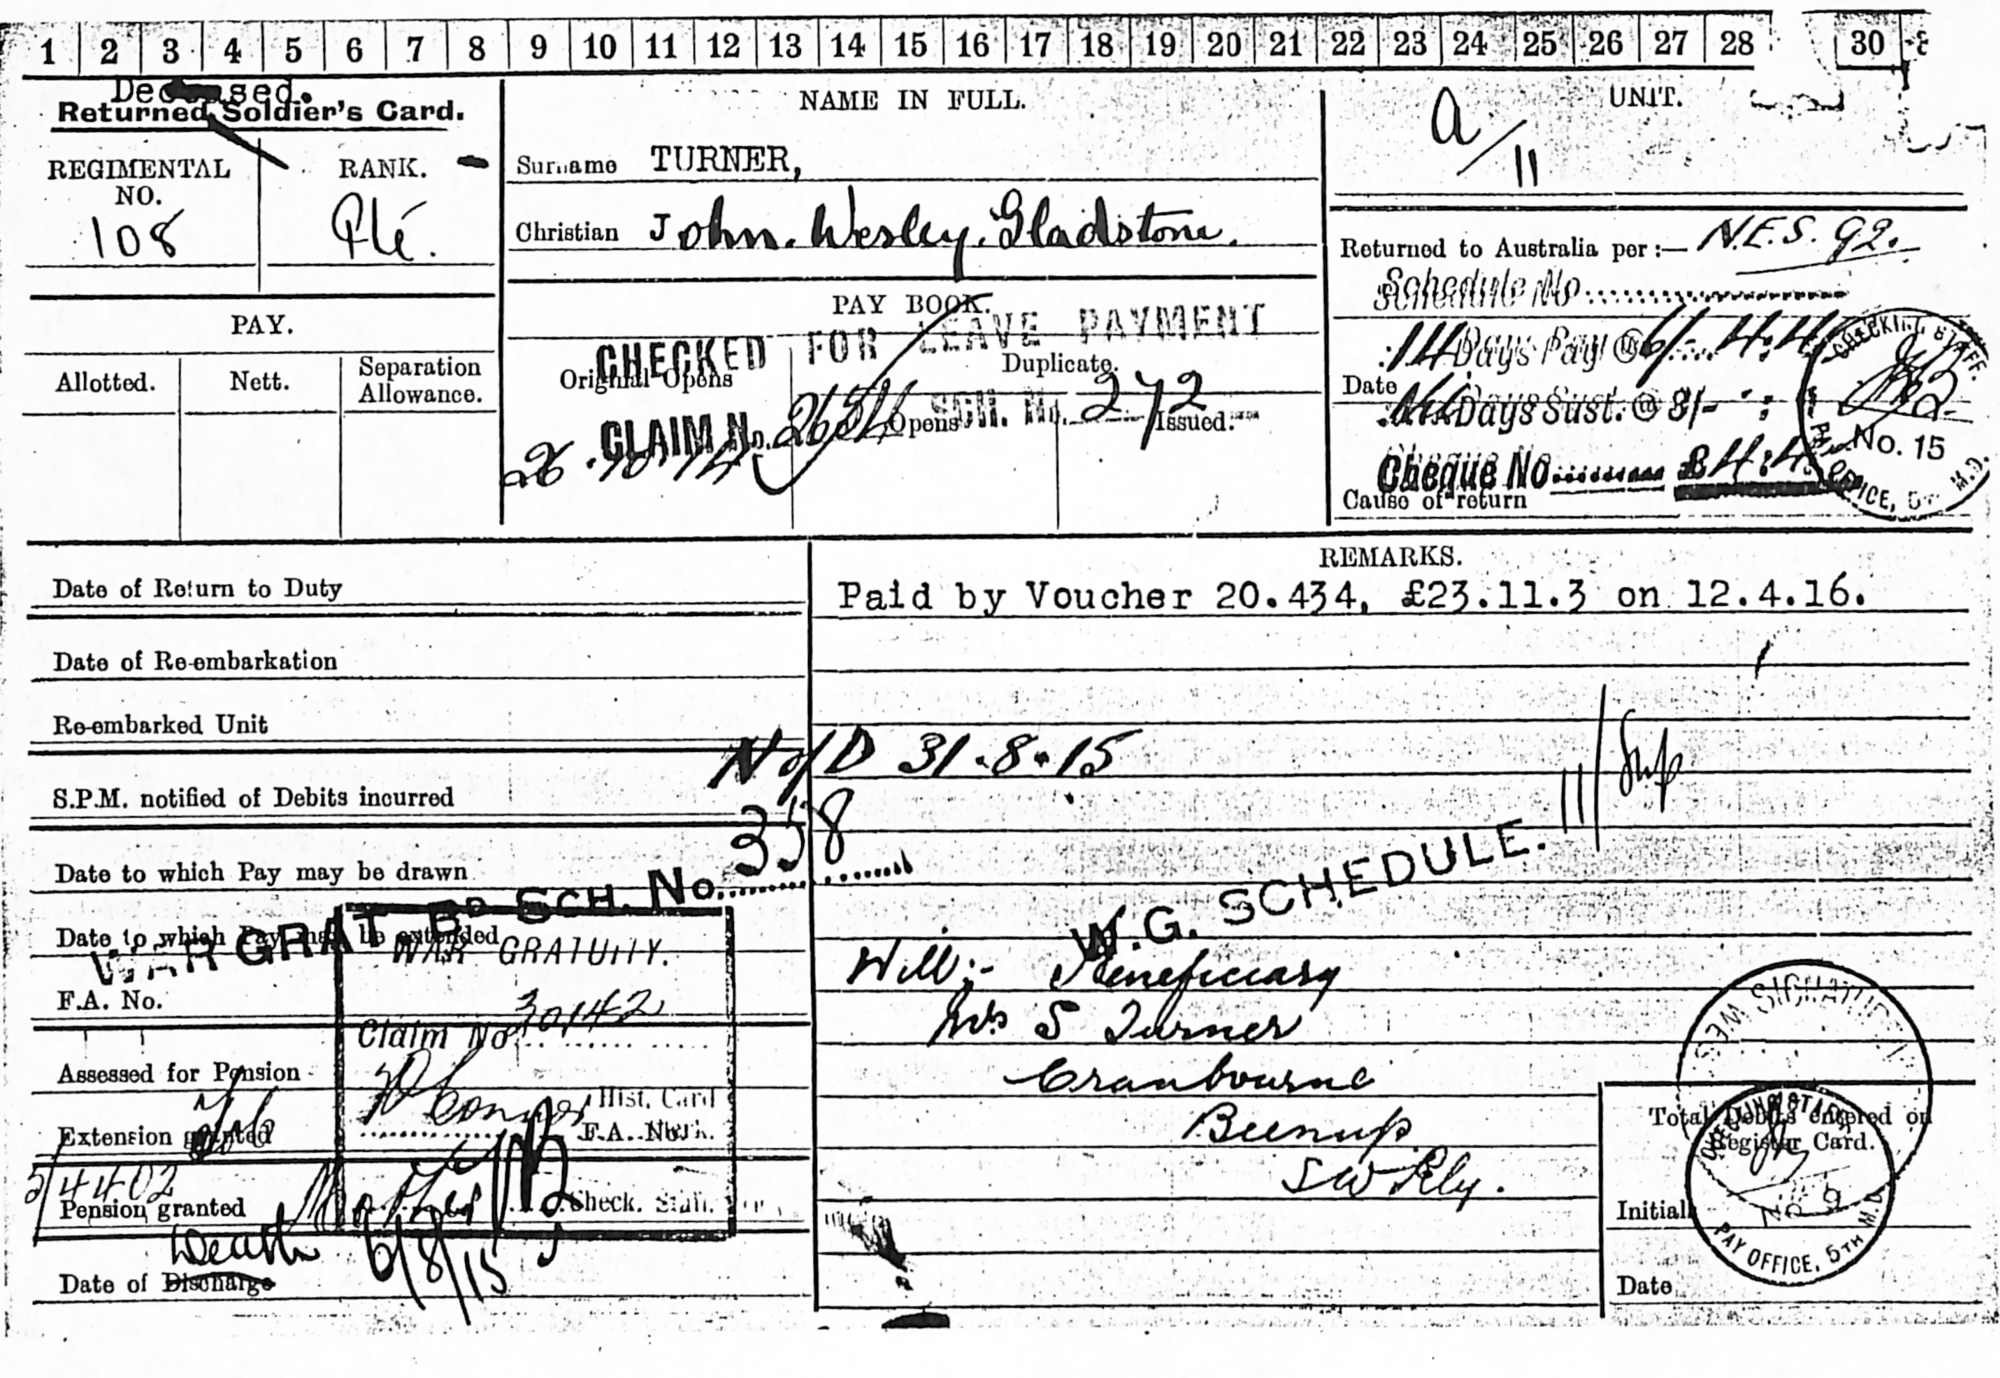 1 2 3 4 5 6 7 8 9 10 11 12 13 14 15 16 17 18 19 20 21 22 23 24 25 26 27 28 30
Deceased.
Returned Soldier's Card.
REGIMENTAL NO.
108
RANK.
Pte.
NAME IN FULL.
Surname TURNER,
Christian John. Wesley. Gladstone.
UNIT.
A/11
Returned to Australia per:— N.E.S. 92.
Schedule No
14 Days Pay @ 6/- 4.4
Date
Days Sust. @ 3/- :
Cheque No £4.4
Cause of return
CHECKING STAFF.
No. 15
PAY OFFICE, 5TH M.D.
PAY.
Allotted.
Nett.
Separation Allowance.
PAY BOOK.
CHECKED FOR LEAVE PAYMENT
Original Opens
Duplicate.
CLAIM No. SCH. No. 272
Opens
Issued.
26.10.14
Date of Return to Duty
Date of Re-embarkation
Re-embarked Unit
S.P.M. notified of Debits incurred
Date to which Pay may be drawn
Date to which Pay may be extended
F.A. No.
Assessed for Pension
Extension granted
Pension granted
Date of Discharge
Death 6/8/15
WAR GRAT BD SCH. No. 358
WAR GRATUITY.
Claim No 30142
Hist. Card
F.A. Nth.
Check. Staff.
REMARKS.
Paid by Voucher 20.434, £23.11.3 on 12.4.16.
N of D 31.8.15
W.G. SCHEDULE.
Will:- Beneficiary
Mrs S Turner
Cranbourne
Beenup
S W Rly.
Total Debits entered on
Register Card.
Initial
Date
PAY OFFICE, 5TH M.D.